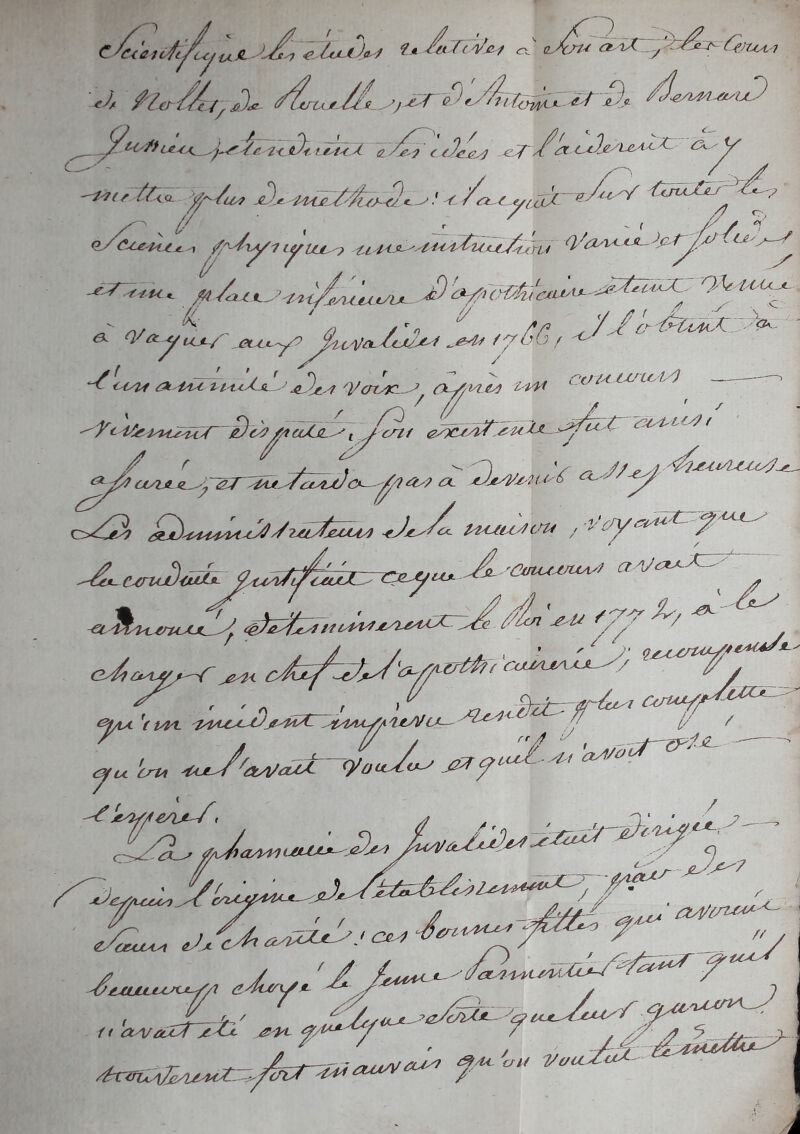 Scientifique les études relatives à Son art; les Cours
de Nollet, de Rouelle, et d'Antoine et de Bernard
Jussieu, étendirent Ses idées et l'aiderent à y
mettre plus de methode: il acquit Sur toutes les
Sciences physiques une instruction variée et solide,
et une place inférieure d'apothicaire étant venue
à vaquer aux Invalides en 1766, il l'obtint à
l'unanimité des voix, après un concours —
vivement disputé. Son existence fut ainsi
assurée, et ne tarda pas à devenir assez heureuse
Les administrateurs de la maison, voyant que
la conduite justifiait ce que le concours avait
annoncé, déterminerent le Roi en 1772, à le
charger en chef de l'apothicairerie; recompense
qu'un incident imprévu rendit plus complette
qu'on ne l'avait voulu et qu'il n'avoit osé —
l'espérer.
La pharmacie des Invalides était dirigée —
depuis l'origine de l'établissement, par des
Sœurs de charité: ces bonnes filles qui avoient
beaucoup choyé le Jeune Parmentier tant qu'il
n'avait été en quelque Sorte que leur garçon
trouverent fort mauvais qu'on voulut le mettre